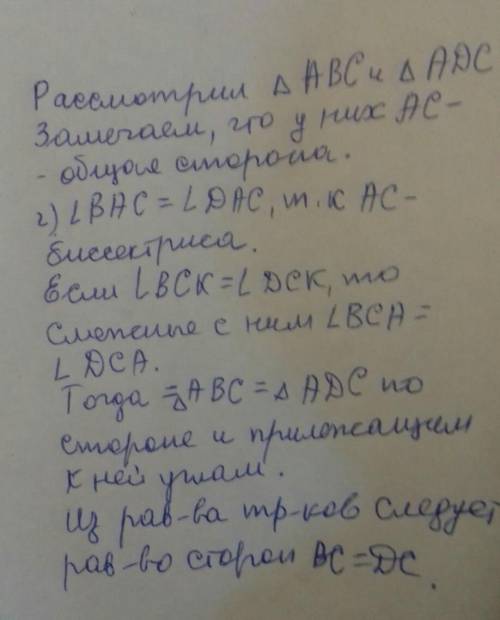 Рассмотрим △ ABC и △ ADC
Замечаем, что у них AC -
- общая сторона.
2) ∠BAC = ∠DAC, т.к AC -
биссектриса.
Если ∠BCK = ∠DCK, то
смежные с ним ∠BCA =
∠DCA.
Тогда △ABC = △ ADC по
стороне и прилежащим
к ней углам.
Из рав-ва тр-ков следует
рав-во сторон BC = DC.